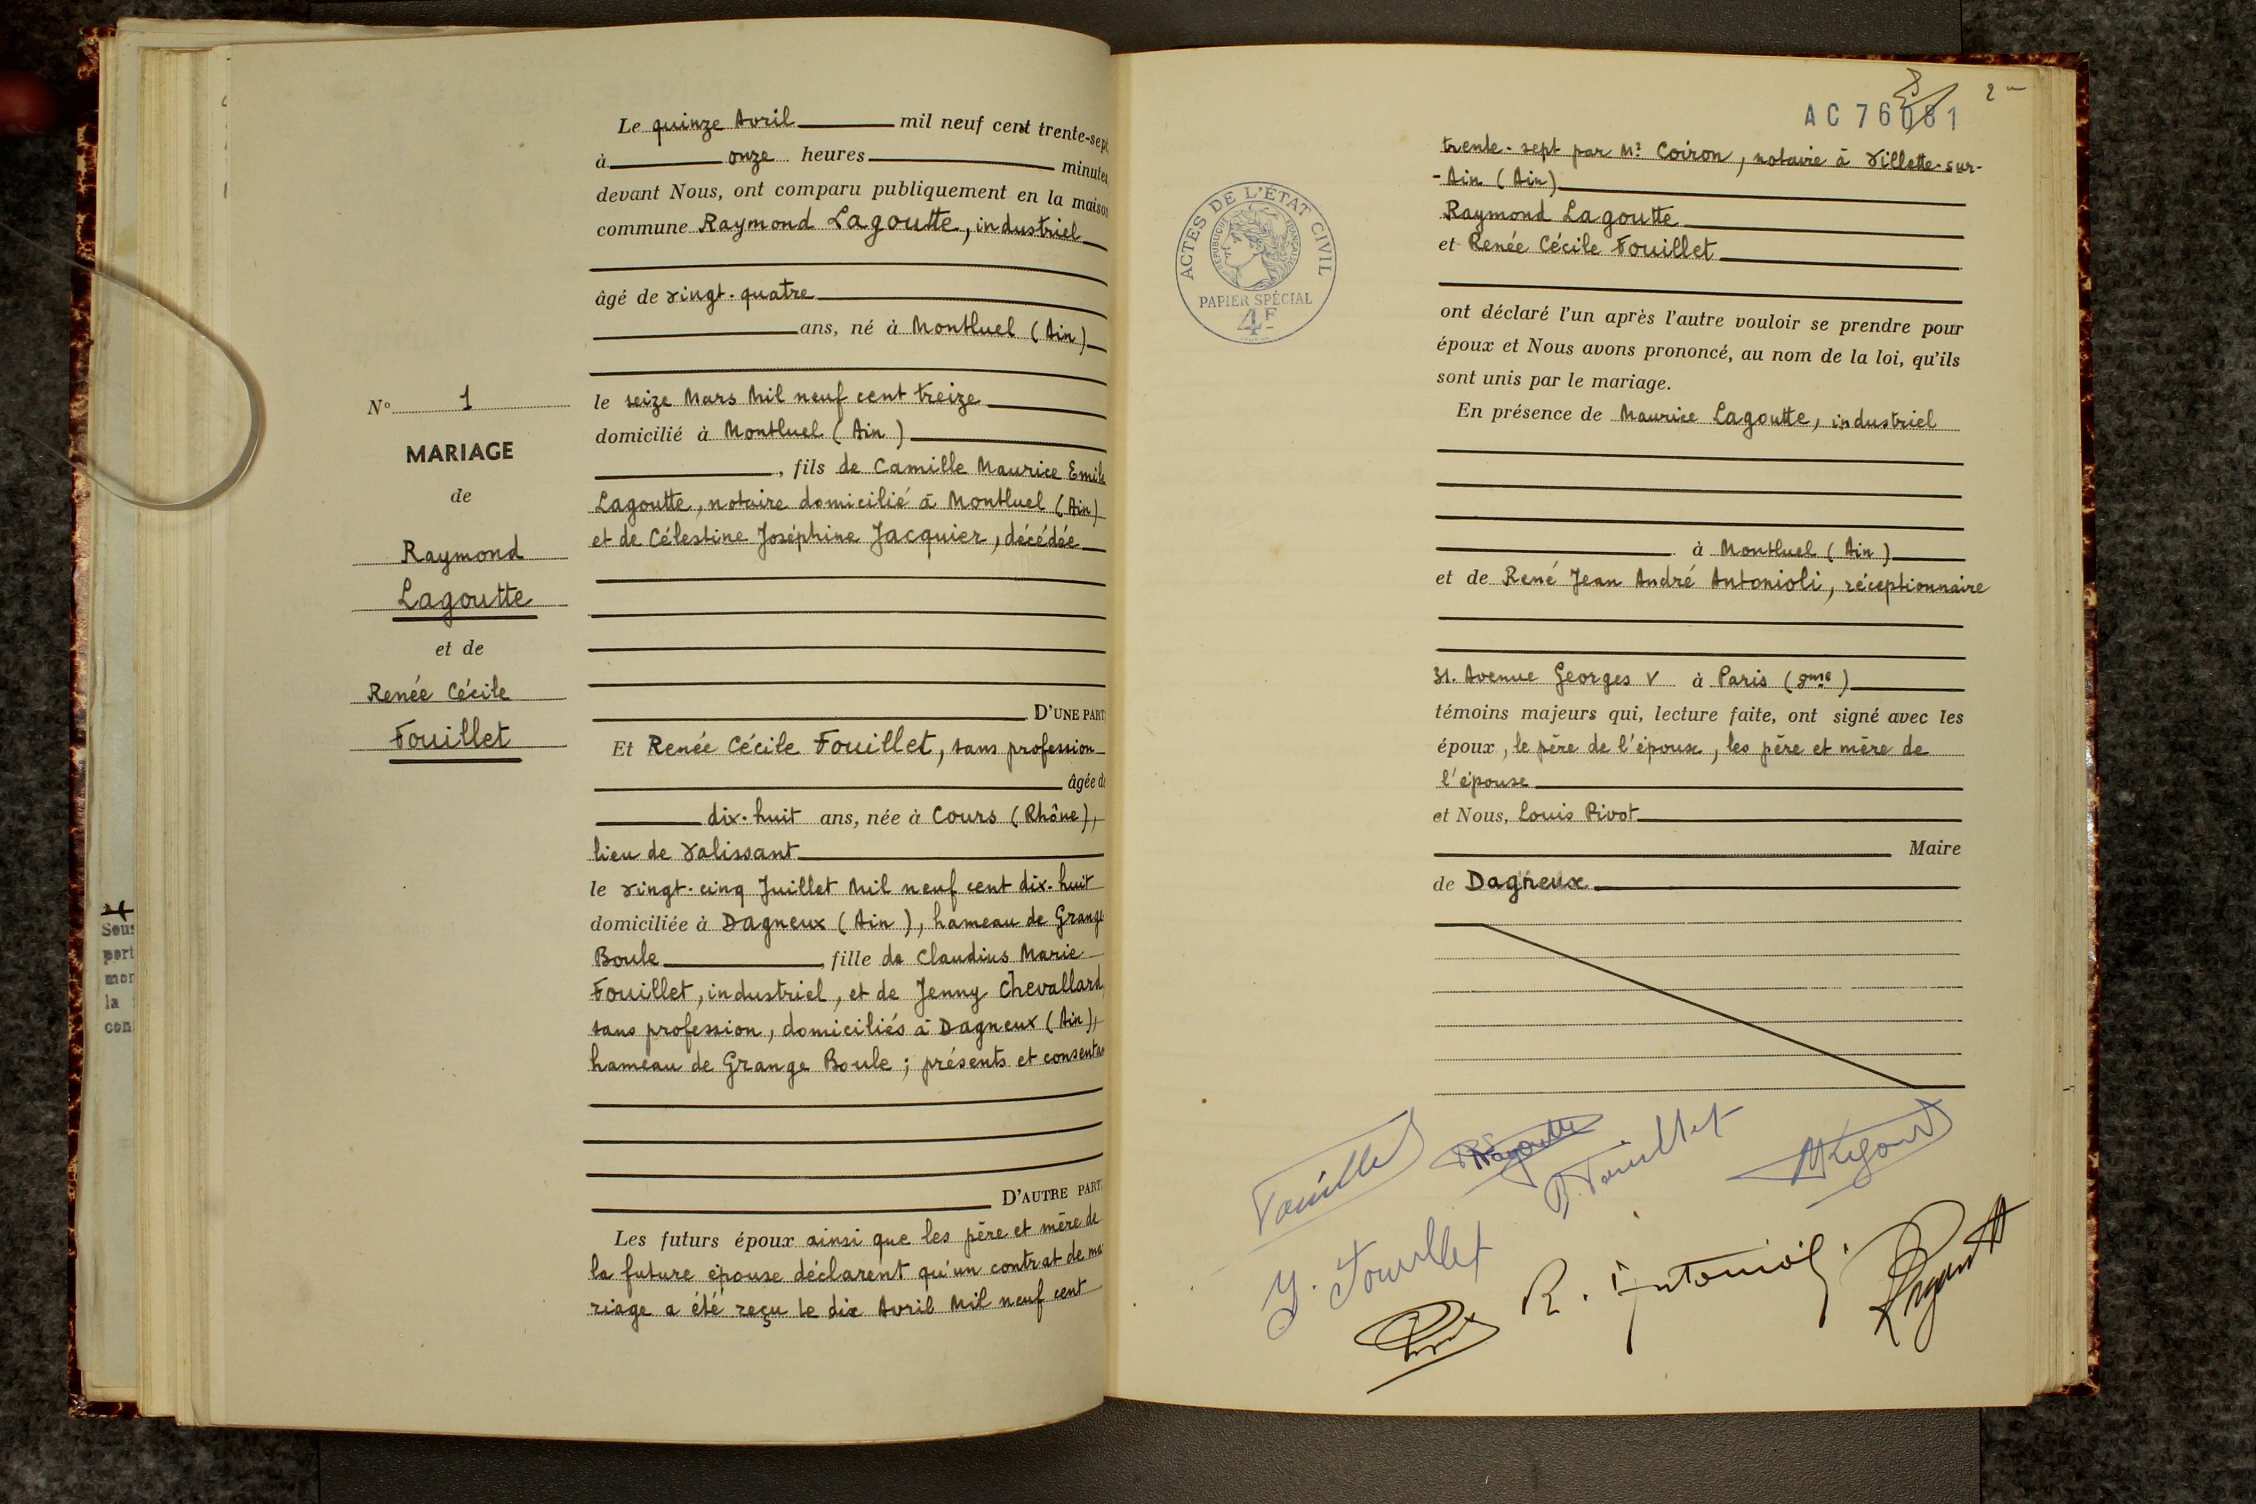 Le quinze Avril mil neuf cent trente-sept
à onze heures minutes
devant Nous, ont comparu publiquement en la maison
commune Raymond Lagoutte, industriel
âgé de vingt-quatre
ans, né à Montluel (Ain)
le seize Mars Mil neuf cent treize
domicilié à Montluel (Ain)
, fils de Camille Maurice Emile
Lagoutte, notaire domicilié à Montluel (Ain)
et de Célestine Joséphine Jacquier, décédée
D'UNE PART
Et Renée Cécile Fouillet, sans profession
âgée de
dix-huit ans, née à Cours (Rhône),
lieu de Valissant
le vingt-cinq Juillet Mil neuf cent dix-huit
domiciliée à Dagneux (Ain), hameau de Grange
Boule, fille de Claudius Marie
Fouillet, industriel, et de Jenny Chevallard,
sans profession, domiciliés à Dagneux (Ain),
hameau de Grange Boule ; présents et consentan
D'AUTRE PART
Les futurs époux ainsi que les père et mère de
la future épouse déclarent qu'un contrat de ma-
riage a été reçu le dix Avril Mil neuf cent
N° 1
MARIAGE
de
Raymond
Lagoutte
et de
Renée Cécile
Fouillet
Sous
port
mor
la
con
AC 76081
2
ACTES DE L'ETAT CIVIL
REPUBLIQUE FRANÇAISE
PAPIER SPÉCIAL
4F
trente-sept par Me Coiron, notaire à Villette-sur-
-Ain (Ain)
Raymond Lagoutte
et Renée Cécile Fouillet
ont déclaré l'un après l'autre vouloir se prendre pour
époux et Nous avons prononcé, au nom de la loi, qu'ils
sont unis par le mariage.
En présence de Maurice Lagoutte, industriel
à Montluel (Ain)
et de René Jean André Antonioli, réceptionnaire
31. Avenue Georges V à Paris (8me)
témoins majeurs qui, lecture faite, ont signé avec les
époux, le père de l'époux, les père et mère de
l'épouse
et Nous, Louis Pivot
Maire
de Dagneux
Fouillet
RLagoutte
Fouillet
J. Fouillet
R. Antonioli